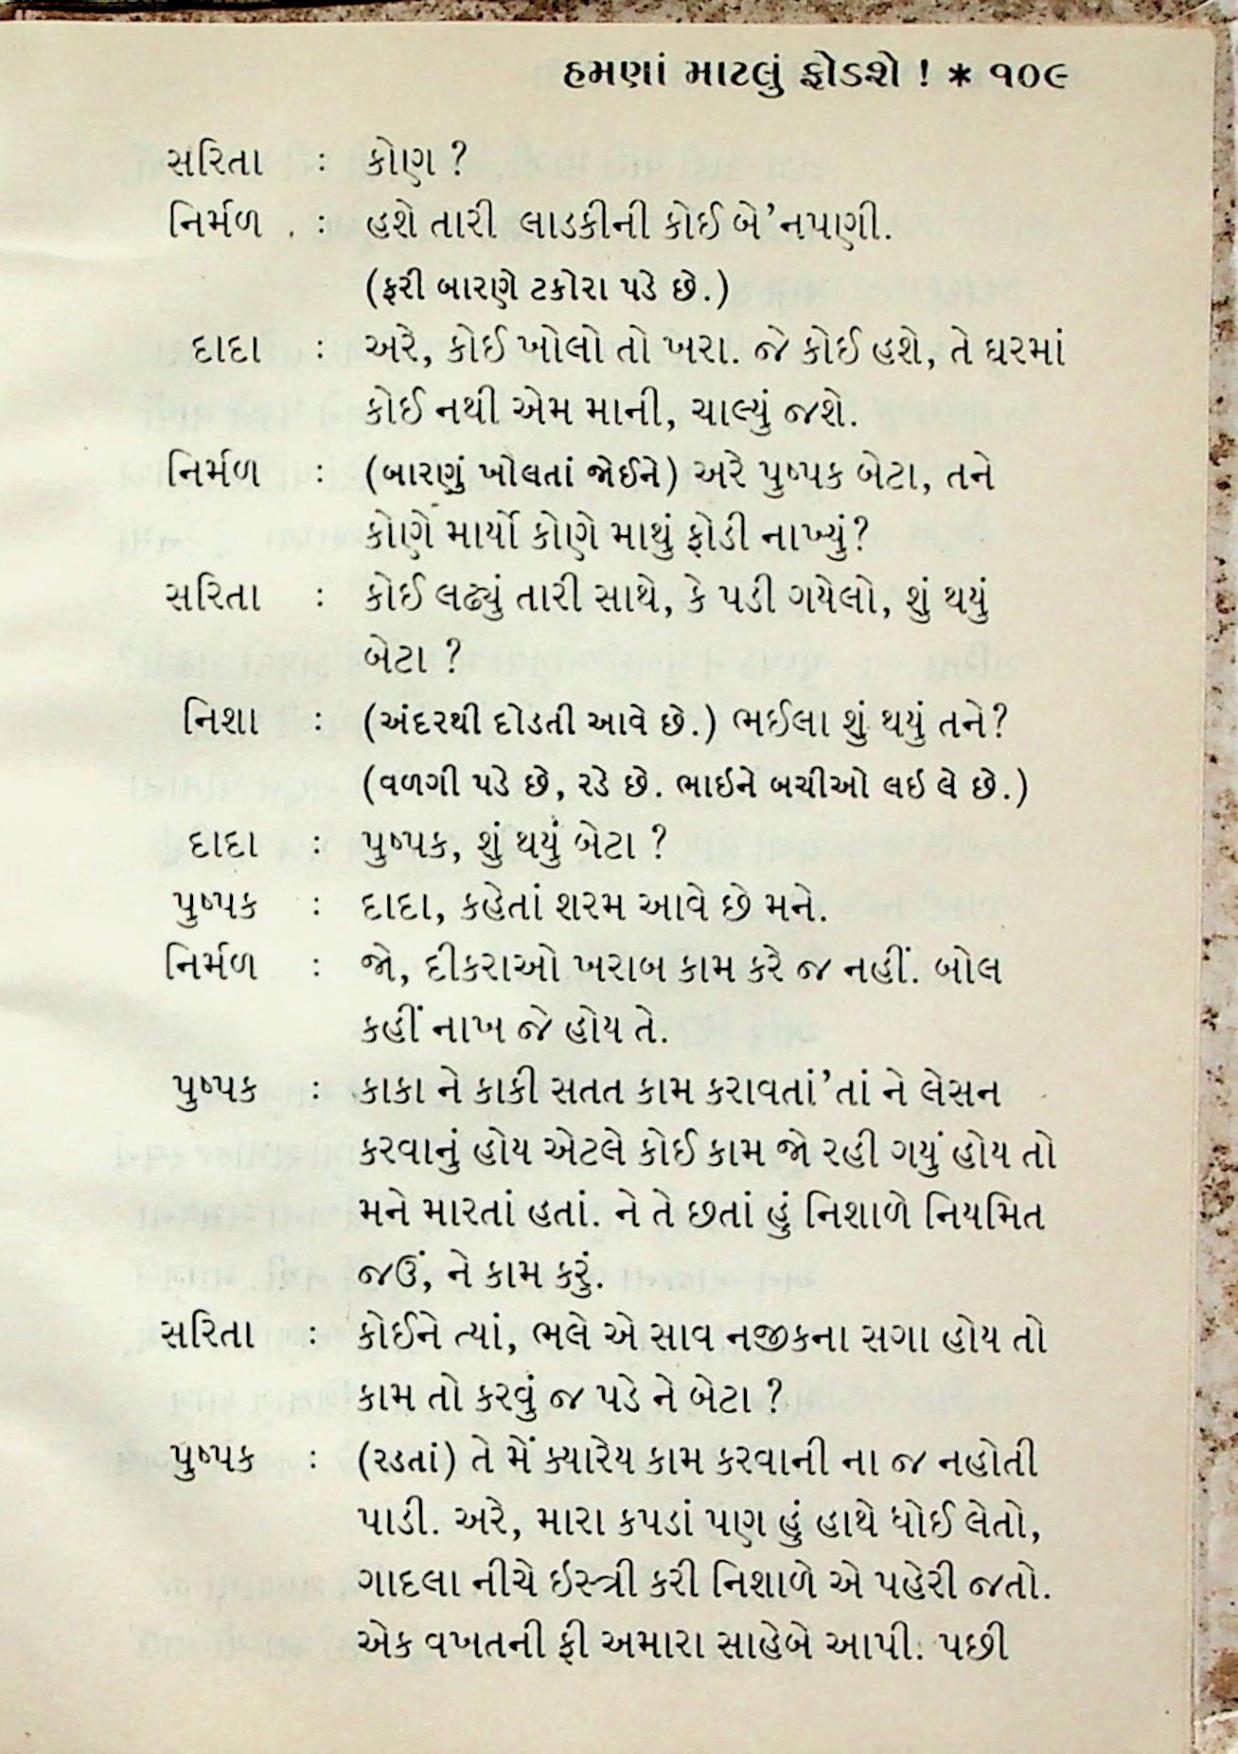 હમણાં માટલું ફોડશે ! * ૧૦૯
સરિતા : કોણ ?
નિર્મળ : હશે તારી લાડકીની કોઈ બે'નપણી.
(ફરી બારણે ટકોરા પડે છે.)
દાદા : અરે, કોઈ ખોલો તો ખરા. જે કોઈ હશે, તે ઘરમાં
કોઈ નથી એમ માની, ચાલ્યું જશે.
નિર્મળ : (બારણું ખોલતાં જોઈને) અરે પુષ્પક બેટા, તને
કોણે માર્યો કોણે માથું ફોડી નાખ્યું?
સરિતા : કોઈ લઢ્યું તારી સાથે, કે પડી ગયેલો, શું થયું
બેટા ?
નિશા : (અંદરથી દોડતી આવે છે.) ભઈલા શું થયું તને?
(વળગી પડે છે, રડે છે. ભાઇને બચીઓ લઇ લે છે.)
દાદા : પુષ્પક, શું થયું બેટા ?
પુષ્પક : દાદા, કહેતાં શરમ આવે છે મને.
નિર્મળ : જો, દીકરાઓ ખરાબ કામ કરે જ નહીં. બોલ
કહીં નાખ જે હોય તે.
પુષ્પક : કાકા ને કાકી સતત કામ કરાવતાં'તાં ને લેસન
કરવાનું હોય એટલે કોઈ કામ જો રહી ગયું હોય તો
મને મારતાં હતાં. ને તે છતાં હું નિશાળે નિયમિત
જઉં, ને કામ કરું.
સરિતા : કોઈને ત્યાં, ભલે એ સાવ નજીકના સગા હોય તો
કામ તો કરવું જ પડે ને બેટા ?
પુષ્પક : (રડતાં) તે મેં ક્યારેય કામ કરવાની ના જ નહોતી
પાડી. અરે, મારા કપડાં પણ હું હાથે ધોઈ લેતો,
ગાદલા નીચે ઇસ્ત્રી કરી નિશાળે એ પહેરી જતો.
એક વખતની ફી અમારા સાહેબે આપી. પછી